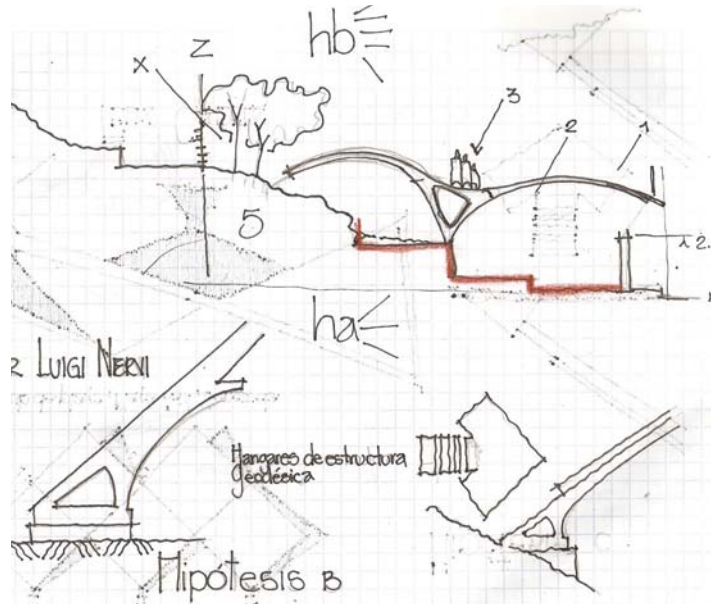 hb
Z
X
3
2
1
5
ha
LUIGI NERVI
Hangares de estructura
geodésica
Hipótesis B